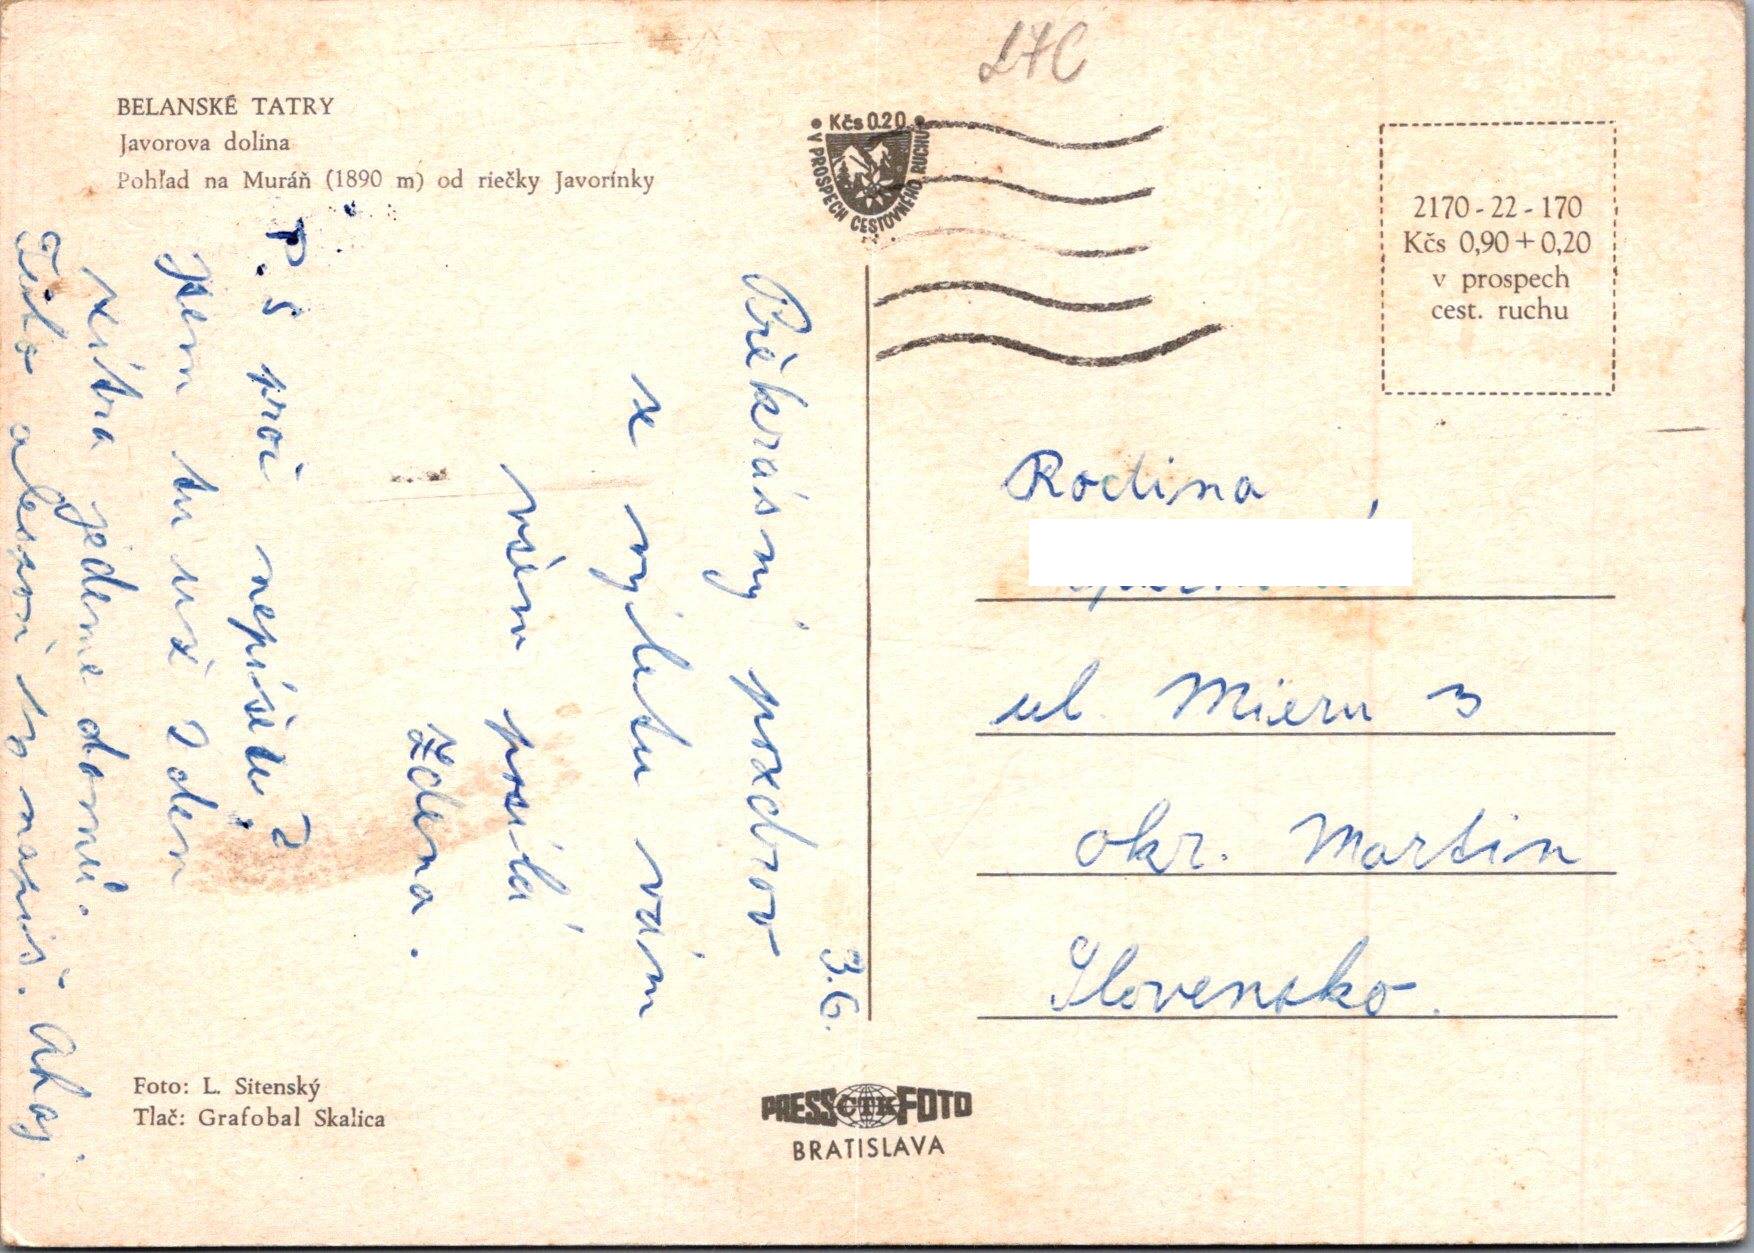 27C
BELANSKÉ TATRY
Javorova dolina
Pohľad na Muráň (1890 m) od riečky Javorínky
• Kčs 0.20 •
V PROSPECH CESTOVNÉHO RUCHU
2170-22-170
Kčs 0,90+0,20
v prospech
cest. ruchu
3.6.
Překrásný pozdrav
z výletu vám
všem posílá
Zdena.
P.S proč nepíšete?
Jsem tu už 2 den
zítra jedeme domů.
alespoň to
Ahoj.
Rodina
ul. Mieru 3
okr. Martin
Slovensko.
Foto: L. Sitenský
Tlač: Grafobal Skalica
PRESS ČTK FOTO
BRATISLAVA